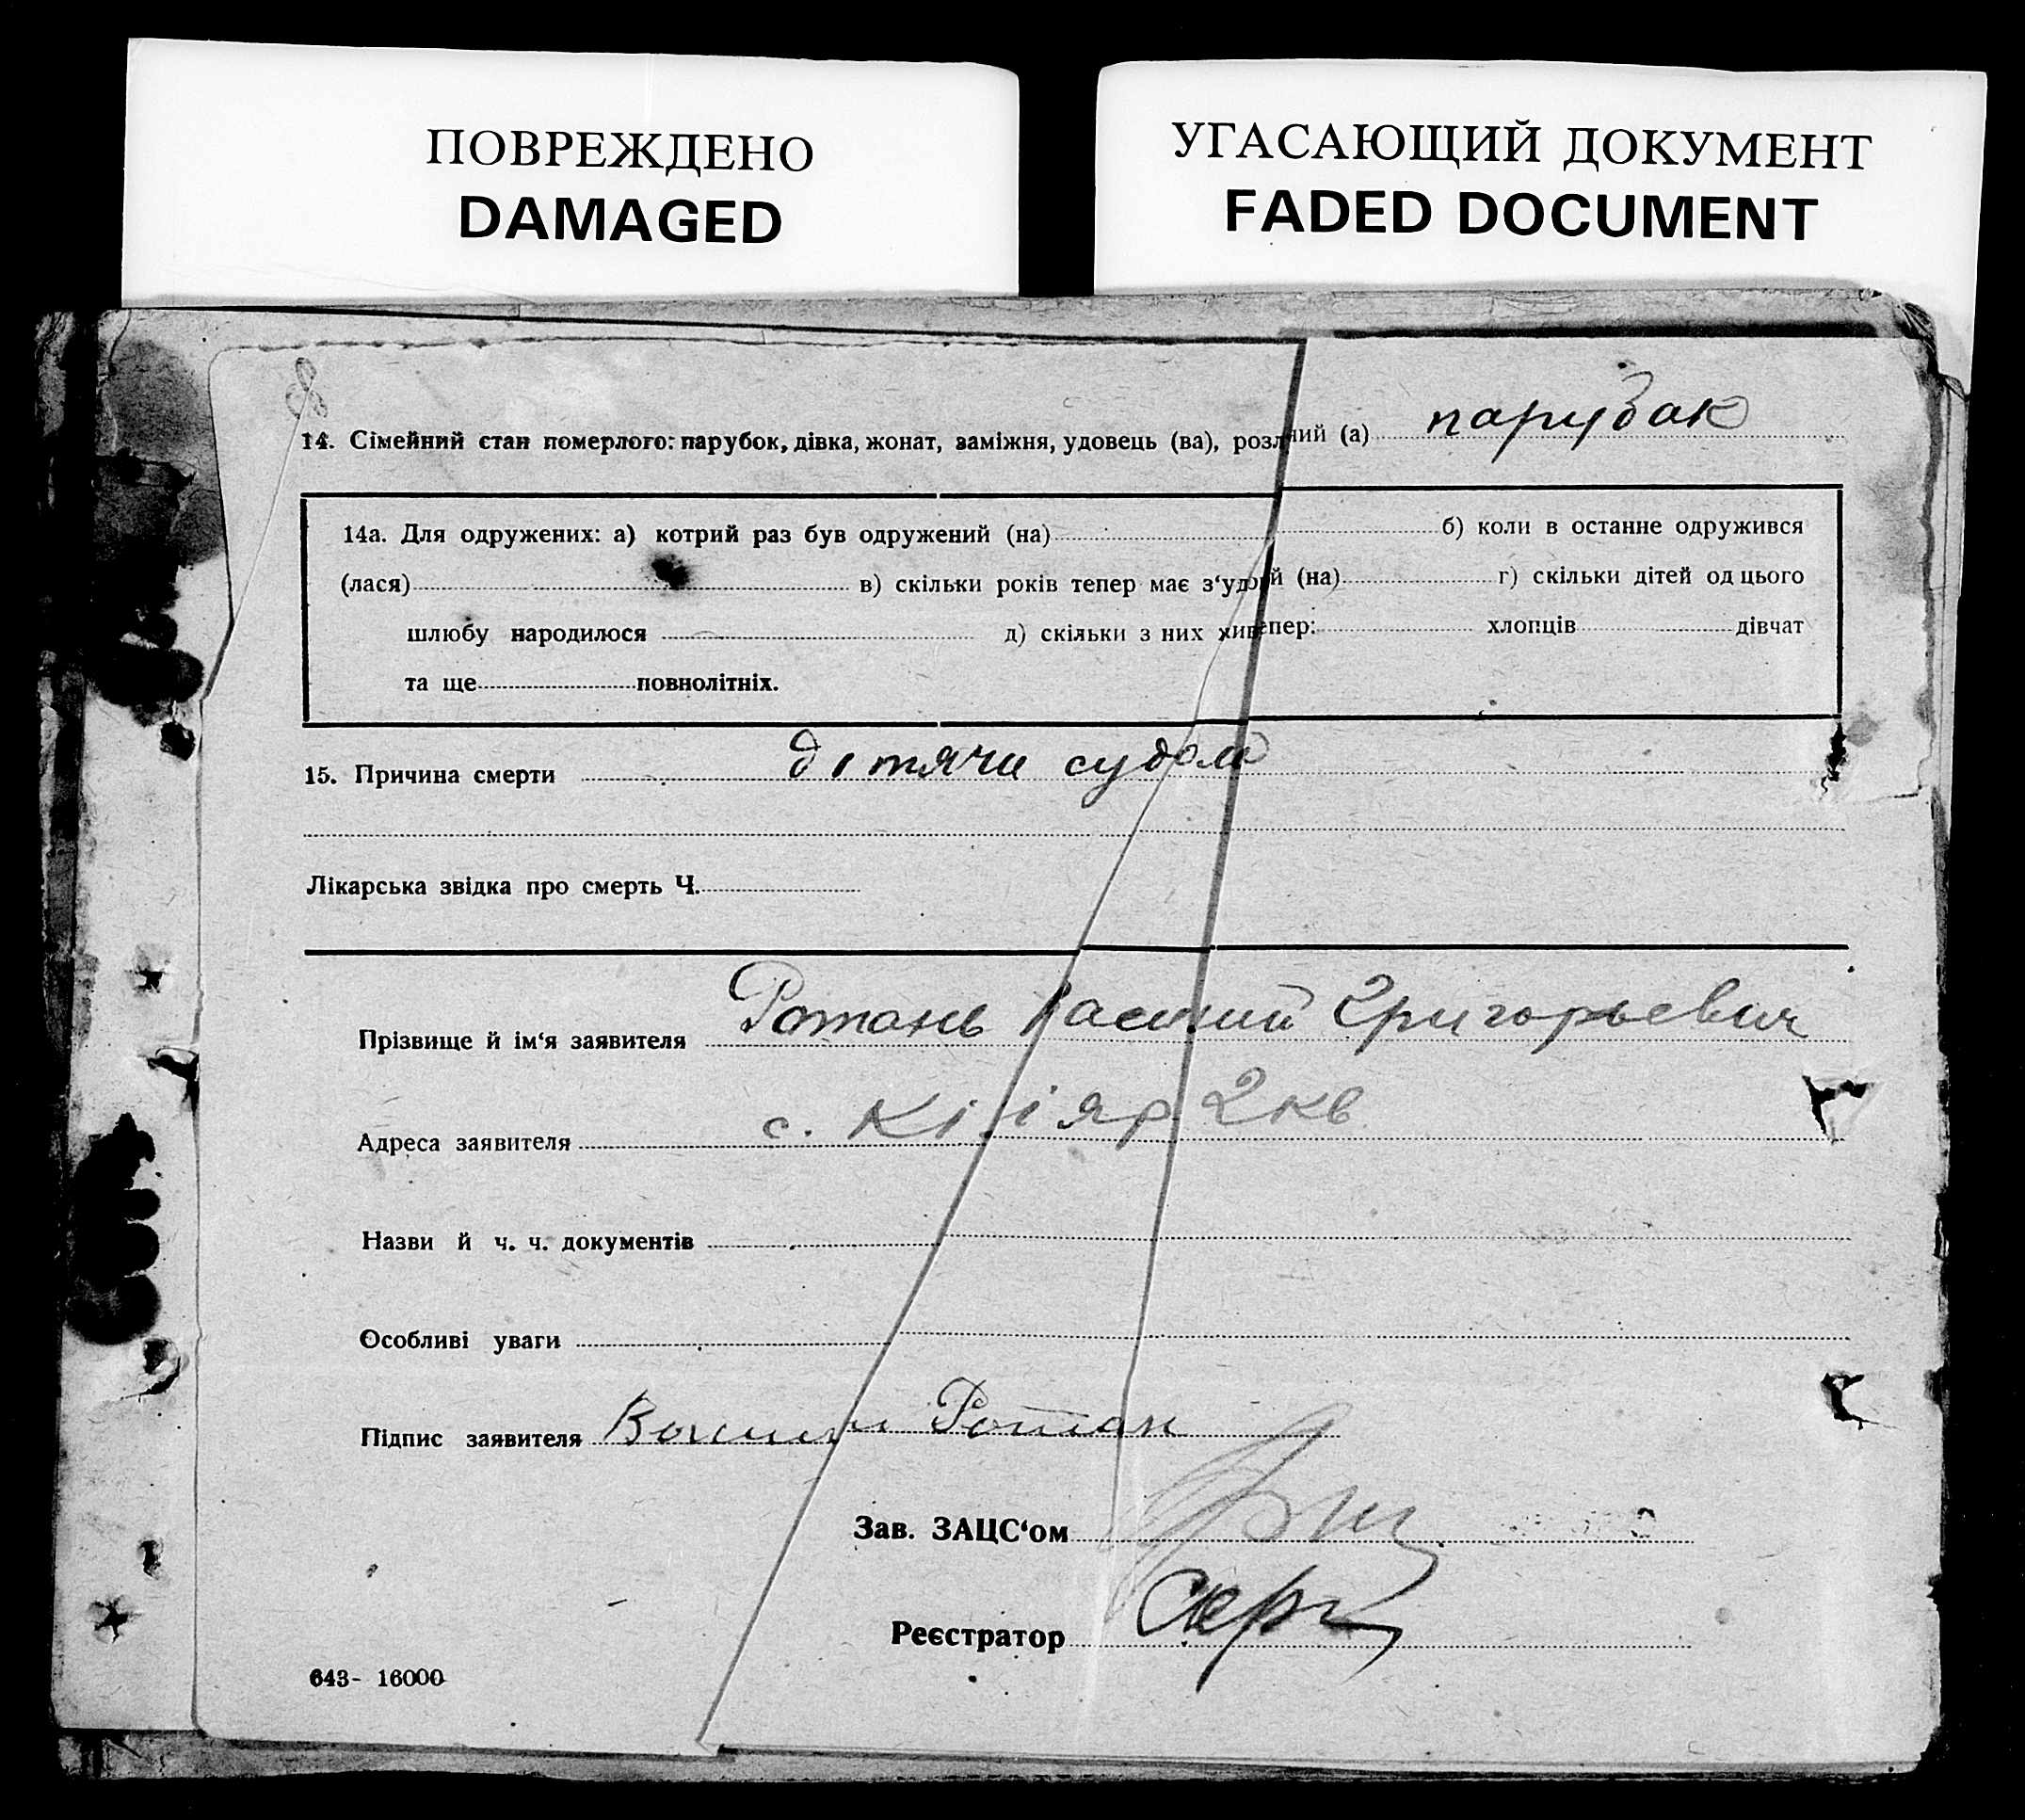 ПОВРЕЖДЕНО
DAMAGED
УГАСАЮЩИЙ ДОКУМЕНТ
FADED DOCUMENT
14. Сімейний стан померлого: парубок, дівка, жонат, заміжня, удовець (ва), розл ний (а) парубак
14а. Для одружених: а) котрий раз був одружений (на) б) коли в останне одружився
(лася) в) скільки років тепер має з‘удо й (на) г) скільки дітей од цього
шлюбу народилося д) скільки з них жив епер: хлопців дівчат
та ще повнолітніх.
15. Причина смерти дітячи судома
Лікарська звідка про смерть Ч.
Прізвище й ім‘я заявителя Ротань Василий Григорьевич
Адреса заявителя с. 2 кв
Назви й ч. ч. документів
Особливі уваги
Підпис заявителя Ротан
Зав. ЗАЦС‘ом
Реєстратор
643- 16000